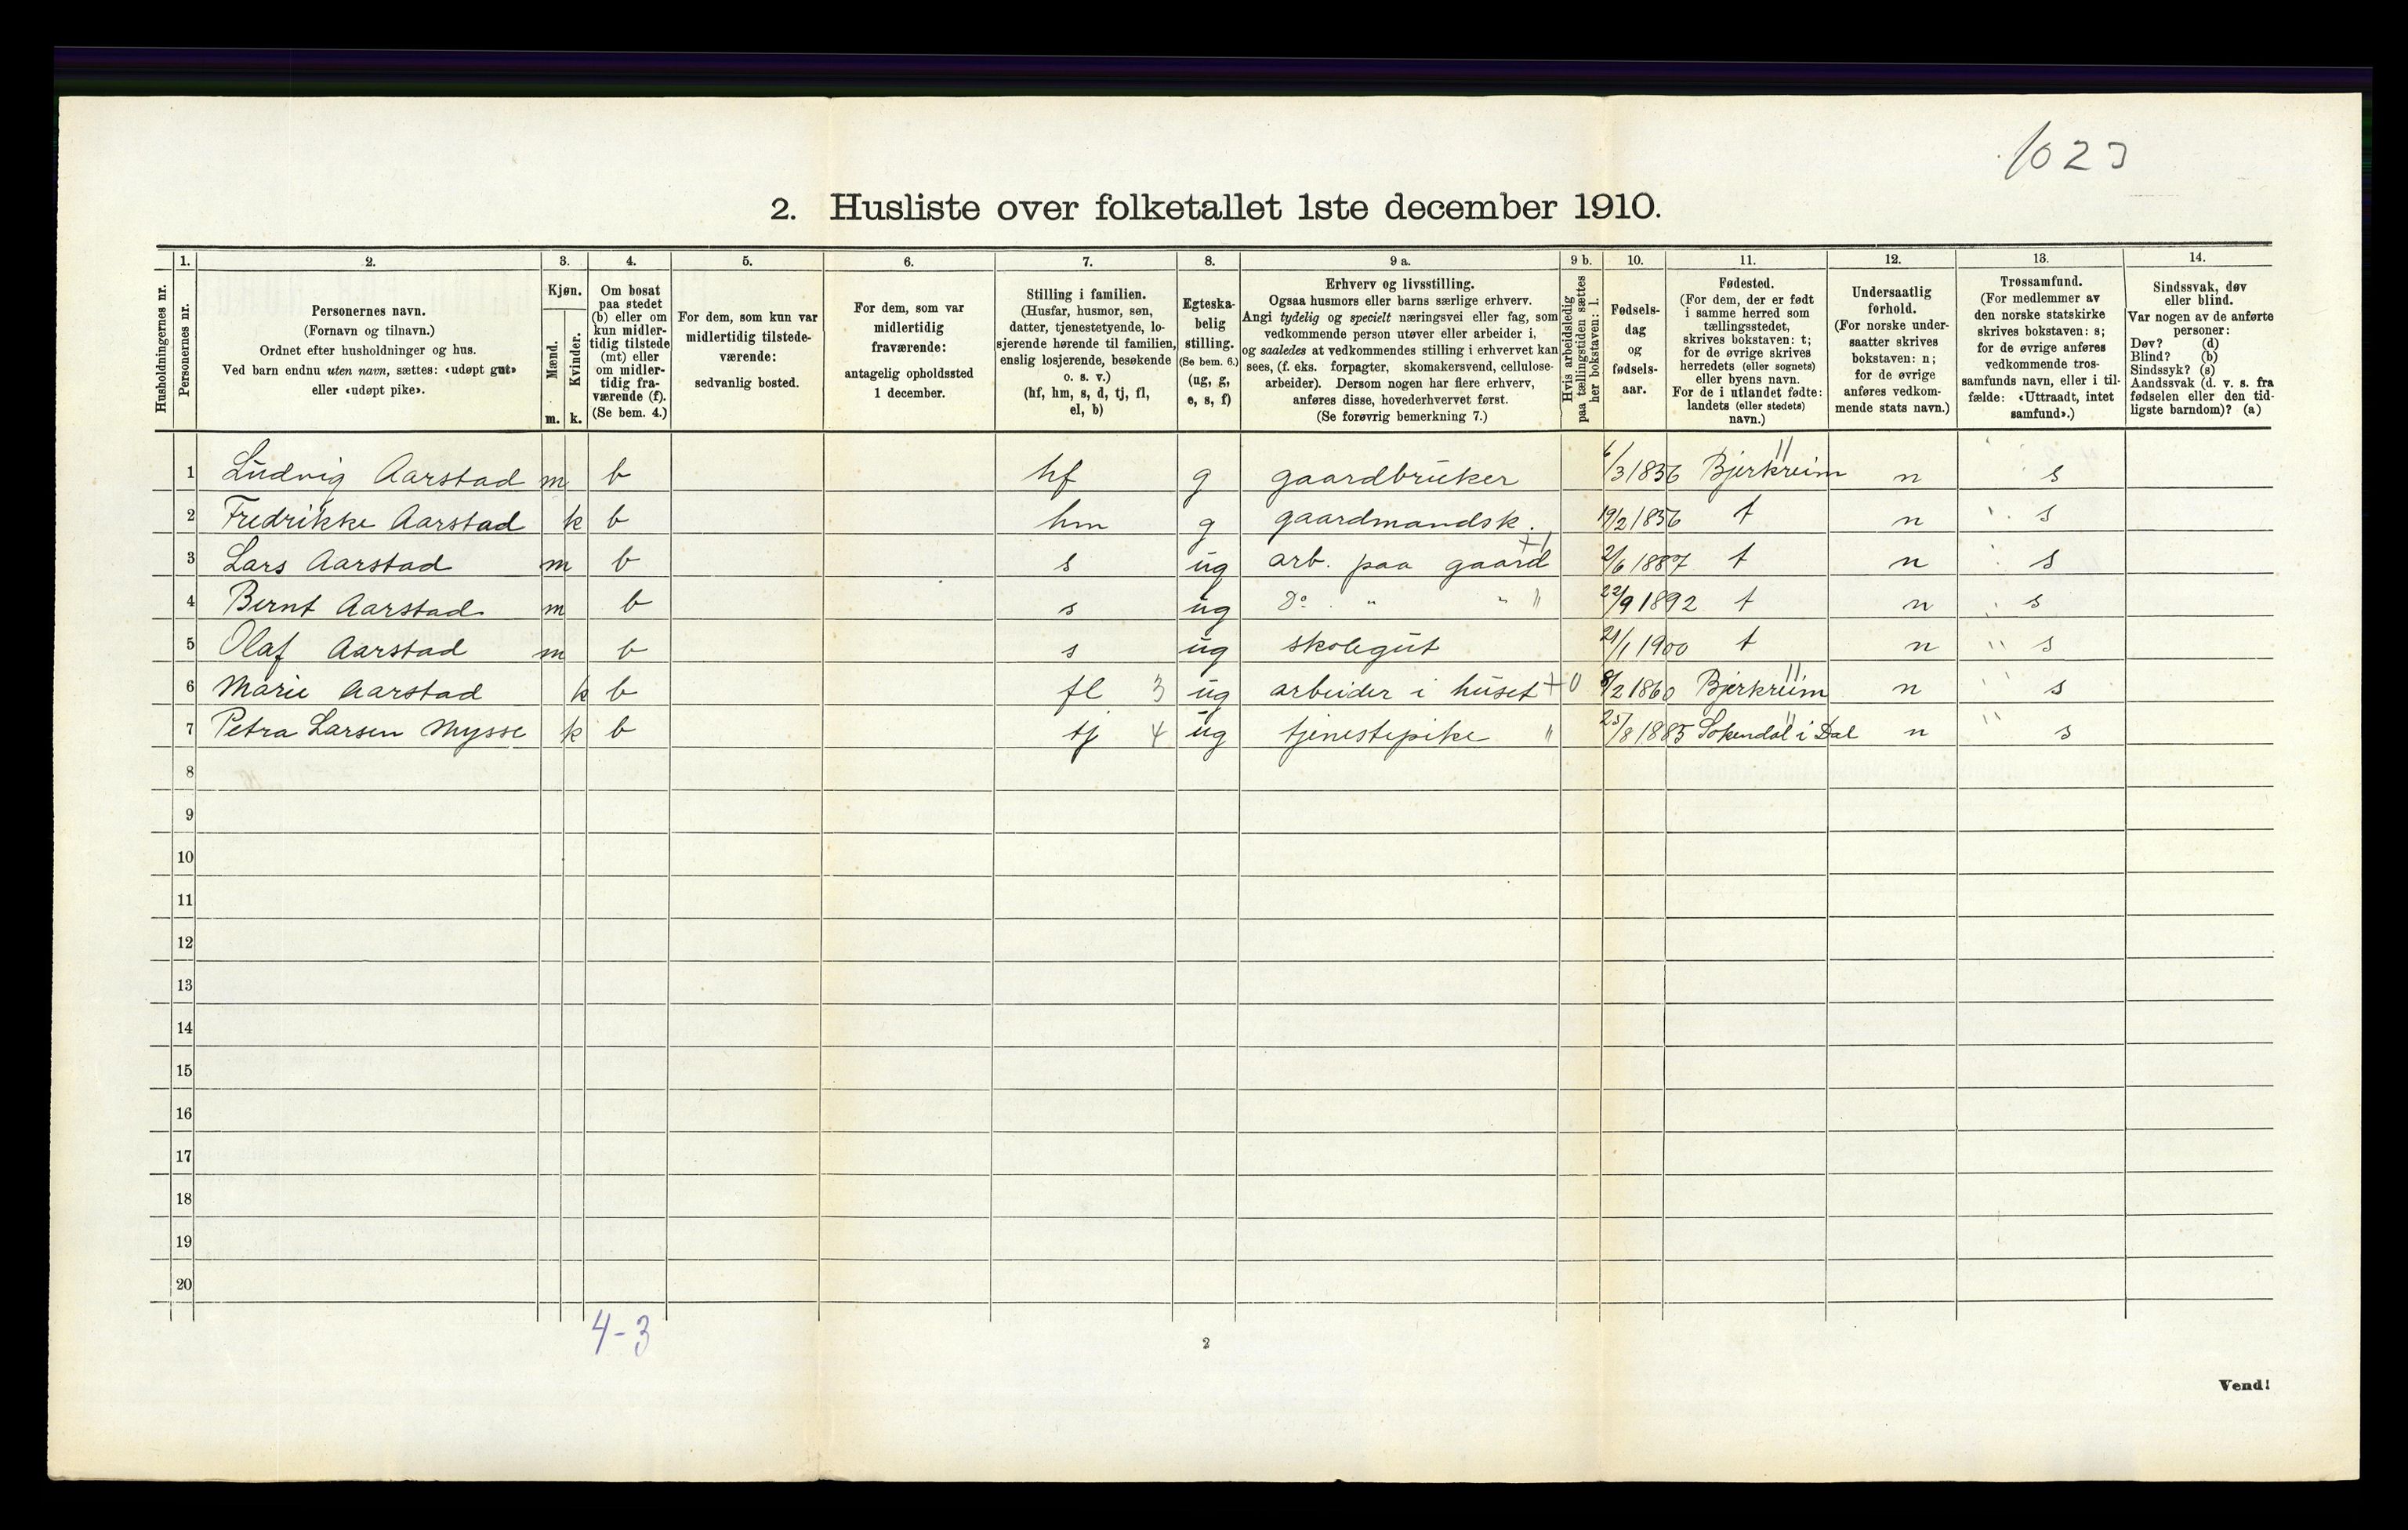 1023
2. Husliste over folketallet 1ste december 1910.
Husholdningernes nr.
1.
Personernes nr.
2.
Personernes navn.
(Fornavn og tilnavn.)
Ordnet efter husholdninger og hus.
Ved barn endnu uten navn, sættes: «udøpt gut»
eller «udøpt pike».
3.
Kjøn.
Mænd.
Kvinder.
m. k.
4.
Om bosat
paa stedet
(b) eller om
kun midler-
tidig tilstede
(mt) eller
om midler-
tidig fra-
værende (f).
(Se bem. 4.)
5.
For dem, som kun var
midlertidig tilstede-
værende:
sedvanlig bosted.
6.
For dem, som var
midlertidig
fraværende:
antagelig opholdssted
1 december.
7.
Stilling i familien.
(Husfar, husmor, søn,
datter, tjenestetyende, lo-
sjerende hørende til familien,
enslig losjerende, besøkende
o. s. v.)
(hf, hm, s, d, tj, fl,
el, b)
8.
Egteska-
belig
stilling.
(Se bem. 6.)
(ug, g,
e, s, f)
9 a.
Erhverv og livsstilling.
Ogsaa husmors eller barns særlige erhverv.
Angi tydelig og specielt næringsvei eller fag, som
vedkommende person utøver eller arbeider i,
og saaledes at vedkommendes stilling i erhvervet kan
sees, (f. eks. forpagter, skomakersvend, cellulose-
arbeider). Dersom nogen har flere erhverv,
anføres disse, hovederhvervet først.
(Se forøvrig bemerkning 7.)
9 b.
Hvis arbeidsledig
paa tællingstiden sættes
her bokstaven: l.
10.
Fødsels-
dag
og
fødsels-
aar.
11.
Fødested.
(For dem, der er født
i samme herred som
tællingsstedet,
skrives bokstaven: t;
for de øvrige skrives
herredets (eller sognets)
eller byens navn.
For de i utlandet fødte:
landets (eller stedets)
navn.)
12.
Undersaatlig
forhold.
(For norske under-
saatter skrives
bokstaven: n;
for de øvrige
anføres vedkom-
mende stats navn.)
13.
Trossamfund.
(For medlemmer av
den norske statskirke
skrives bokstaven: s;
for de øvrige anføres
vedkommende tros-
samfunds navn, eller i til-
fælde: «Uttraadt, intet
samfund».)
14.
Sindssvak, døv
eller blind.
Var nogen av de anførte
personer:
Døv? (d)
Blind? (b)
Sindssyk? (s)
Aandssvak (d. v. s. fra
fødselen eller den tid-
ligste barndom)? (a)
1 Ludvig Aarstad m b hf g gaardbruker 6/3 1856 Bjerkreim " n s
2 Fredrikke Aarstad k b hm g gaardmandsk. 19/2 1856 t n s
3 Lars Aarstad m b s ug arb. paa gaard +1 2/6 1887 t n s
4 Bernt Aarstad m b s ug Do. " " " 22/9 1892 t n s
5 Olaf Aarstad m b s ug skolegut 21/1 1900 t n s
6 Marie Aarstad k b fl 3 ug arbeider i huset +0 8/2 1860 Bjerkreim " n s
7 Petra Larsen Mysse k b tj 4 ug tjenestepike " 25/8 1885 Sokendal i Dal " n s
8
9
10
11
12
13
14
15
16
17
18
19
20
4-3
2
Vend!